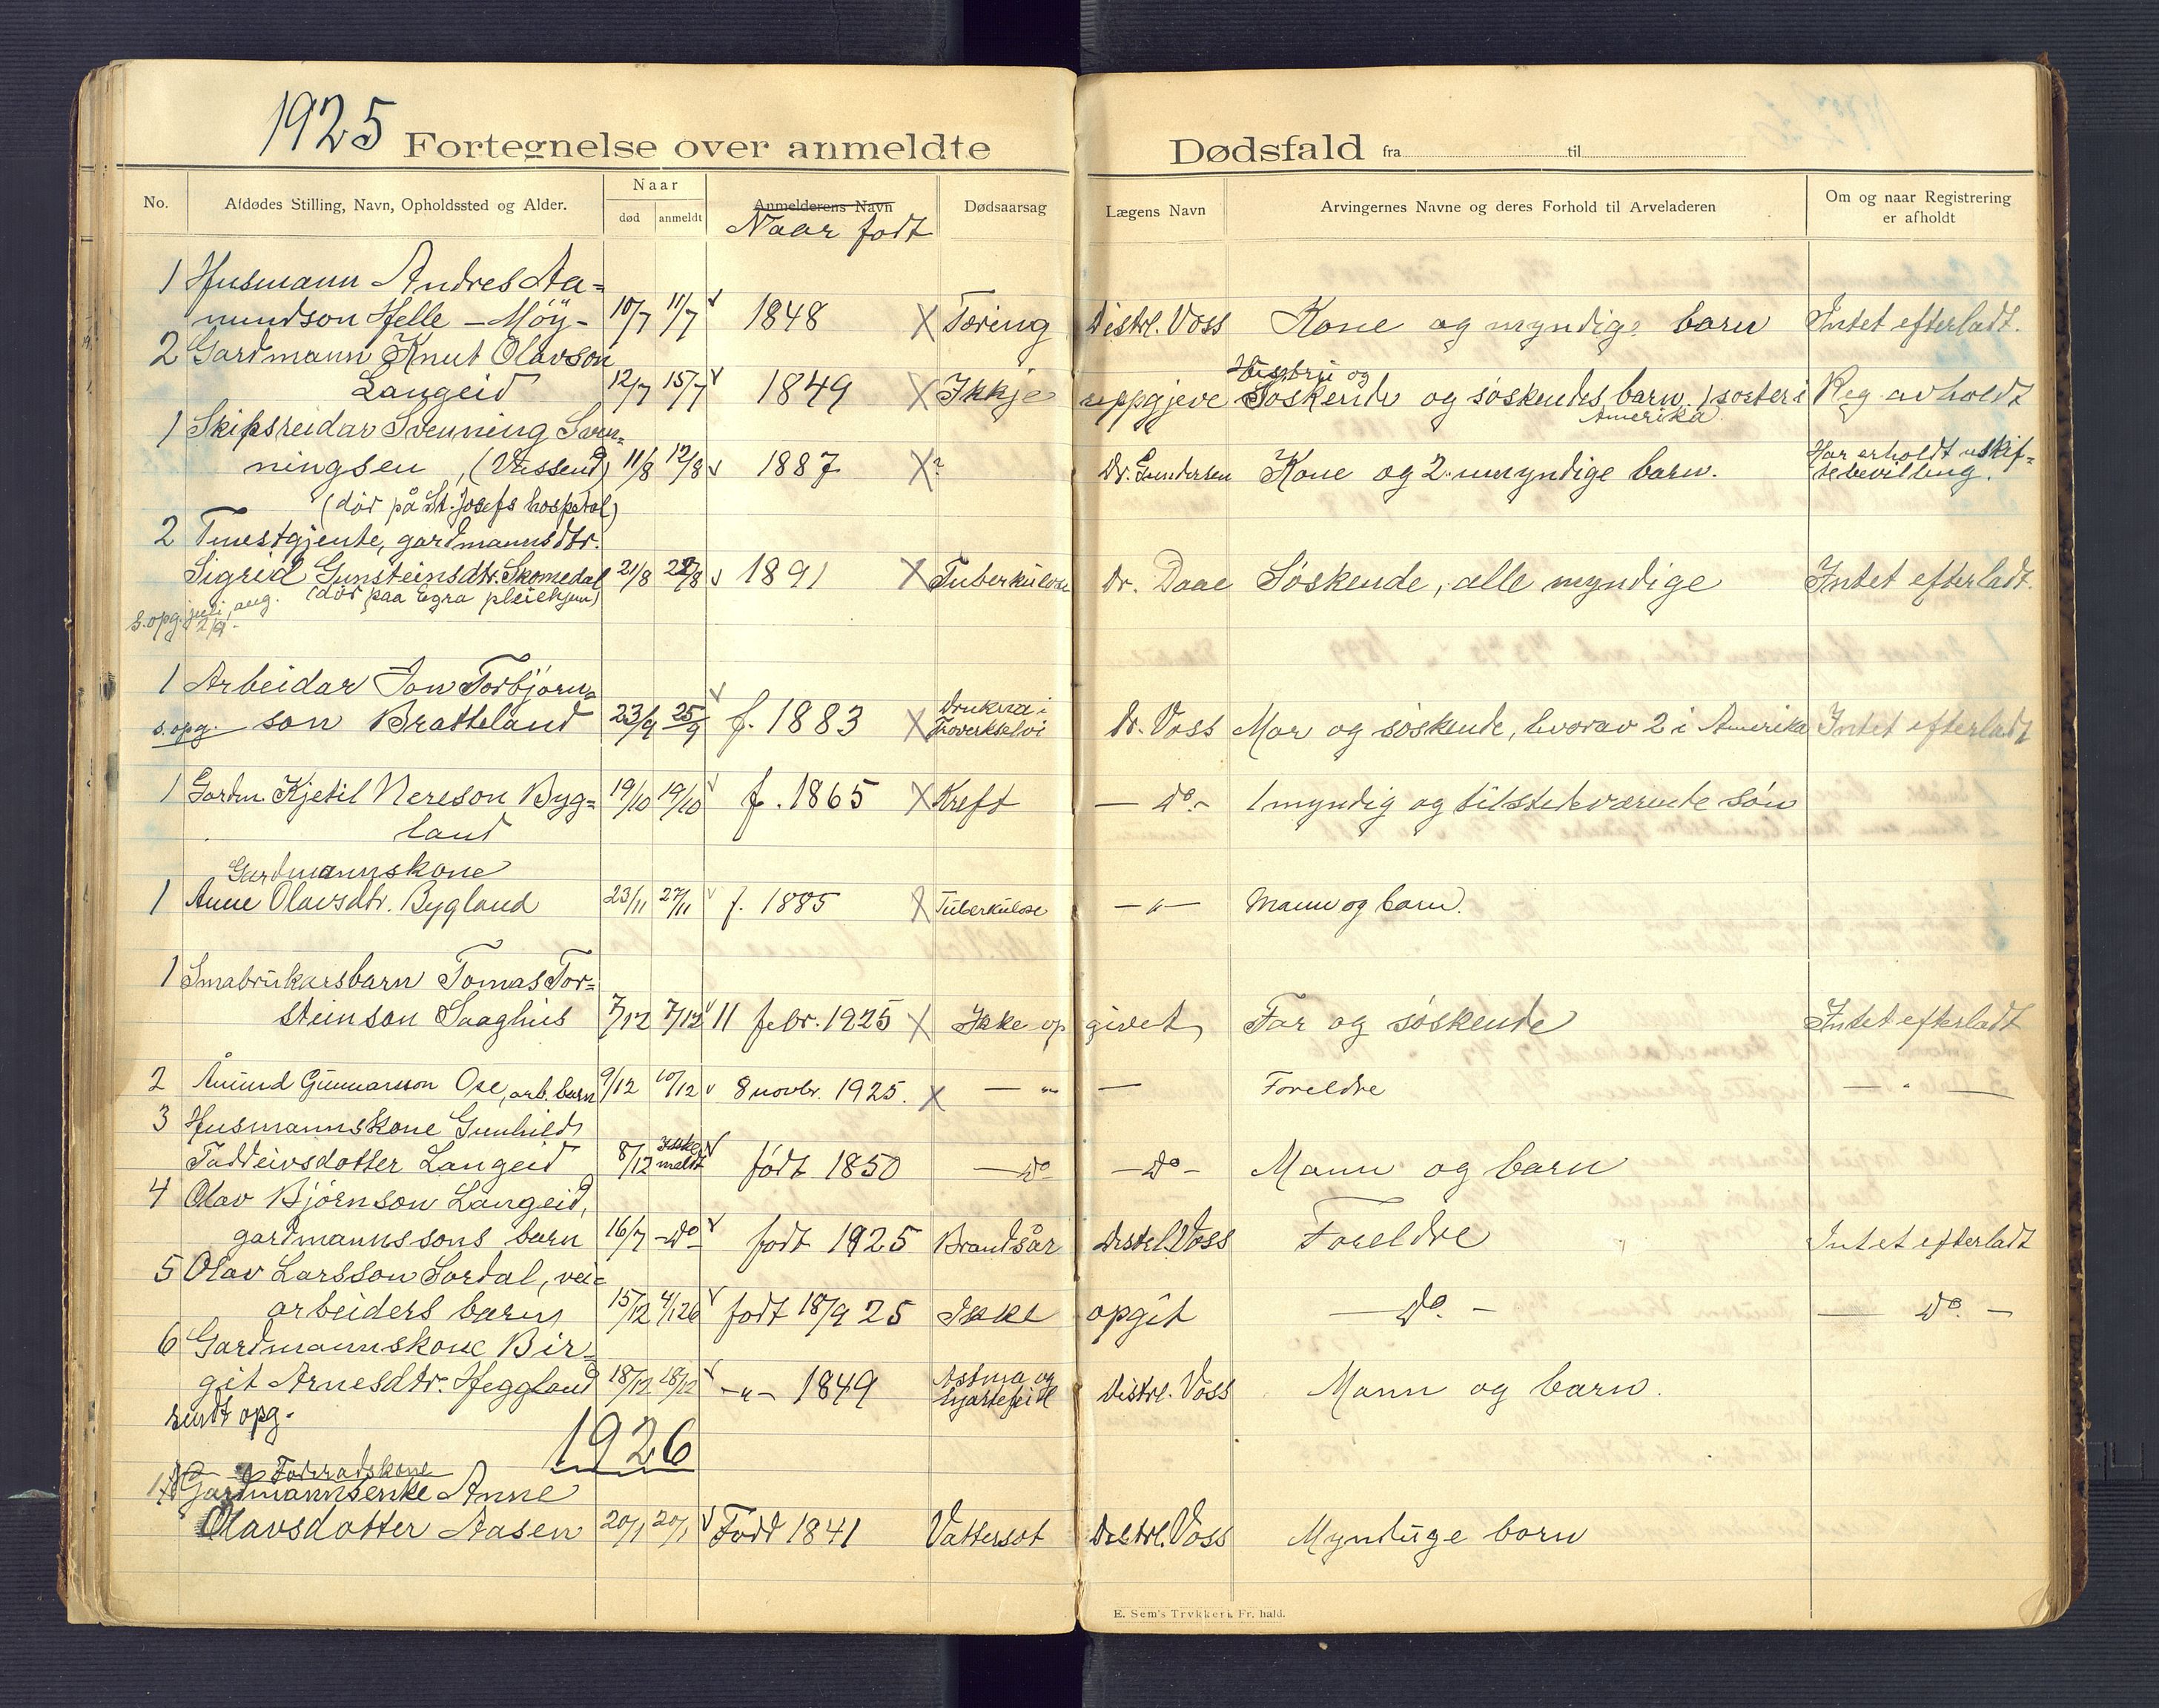 1925 Fortegnelse over anmeldte Dødsfald fra til
No. Afdødes Stilling, Navn, Opholdssted og Alder. Naar død anmeldt Anmelderens Navn Dødsaarsag Lægens Navn Arvingernes Navne og deres Forhold til Arveladeren Om og naar Registrering er afholdt
Naar født
1 Husmann Andres Aa=
mundson Helle - Möy - 10/7 11/7 1848 X Tæring Distrl. Voss Kone og myndige barn Intet efterladt.
2 Gardmann Knut Olavson
Langeid 12/7 15/7 1849 X Ikkje uppgjeve Søskende og søskendes barn. 1 søster i Amerika Reg avholdt
1 Skipsreidar Svenning Sven=
ningsen, (Vassend) 11/8 12/8 1887 X ? Dr. Gundersen Kone og 2 umyndige barn. Har erholdt uskif=
tebevilling.
(død på St. Josefs hospital)
2 Tenestgjente, gardmannsdtr.
Sigrid Gunsteinsdtr. Skomedal 21/8 22/8 1891 X Tuberkulose Dr. Daae Søskende, alle myndige Intet efterladt.
(død paa Egra pleiehjem)
s. opg. juli, aug. 2/9.
1 Arbeidar Jon Torbjørn=
s. opg. son Bratteland 23/9 25/9 f. 1883 X Drukna i Dr. Voss Mor og søskende, hvorav 2 i Amerika Intet efterladt
1 Gardm. Kjetil Nereson Byg=
land 19/10 19/10 f. 1865 X Kreft - Do - 1 myndig og tilstedeværende søn
Gardmannskone
1 Anne Olavsdtr. Bygland 23/11 27/11 f. 1885 X Tuberkulose - " - Mann og barn.
1 Småbrukarsbarn Tomas Tor=
steinson Saaghus 7/12 7/12 11 febr. 1925 X Ikke opgivet Far og søskende Intet efterladt
2 Åmund Gunnarson Ose, arb. barn 9/12 10/12 8 novbr. 1925. X - " - Foreldre - " -
3 Husmannskone Gunhild
Taddeivsdotter Langeid 8/12 Ikke meldt født 1850 - Do - Do - Mann og barn
4 Olav Bjørnson Langeid,
gardmannssons barn 16/7 - Do - født 1925 Brandsår Distrl. Voss Foreldre Intet efterladt
5 Olav Larsson Sordal, vei=
arbeiders barn 15/12 4/1 26 født 18/9 25 Ikke opgit - Do. - - Do. -
6 Gardmannskone Bir=
git Arnesdtr. Heggland 18/12 28/12 - " - 1849 Astma og hjartefeil Distrl. Voss Mann og barn.
sendt opg.
1926
Føderadskone
1 Gardmannsenke Anne
Olavsdotter Aasen 20/1 20/1 Født 1841 Vattersot Distrl. Voss Myndige barn
E. Sem's Trykkeri, Fr. hald.